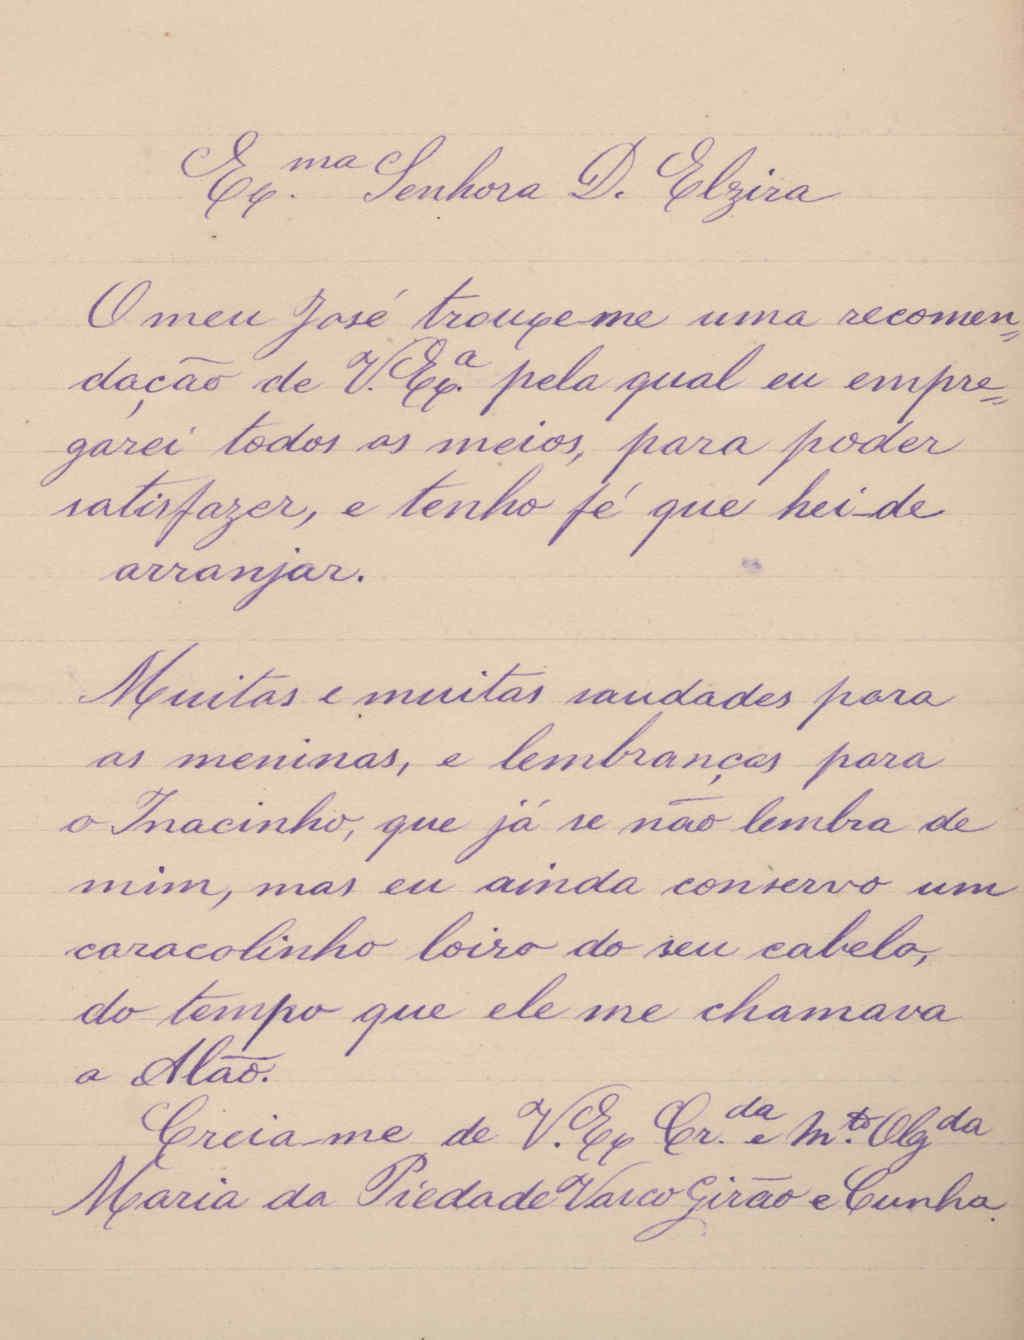 Ex.ma Senhora D. Elzira
O meu José trouxe-me uma recomen=
dação de V. Ex.a pela qual eu empre=
garei todos os meios, para poder
satisfazer, e tenho fé que hei-de
arranjar.
Muitas e muitas saudades para
as meninas, e lembranças para
o Inacinho, que já se não lembra de
mim, mas eu ainda conservo um
caracolinho loiro do seu cabelo,
do tempo que ele me chamava
a Alão.
Creia-me de V. Ex Cr.da e M.to Obgda
Maria da Piedade Vasco Girão e Cunha.